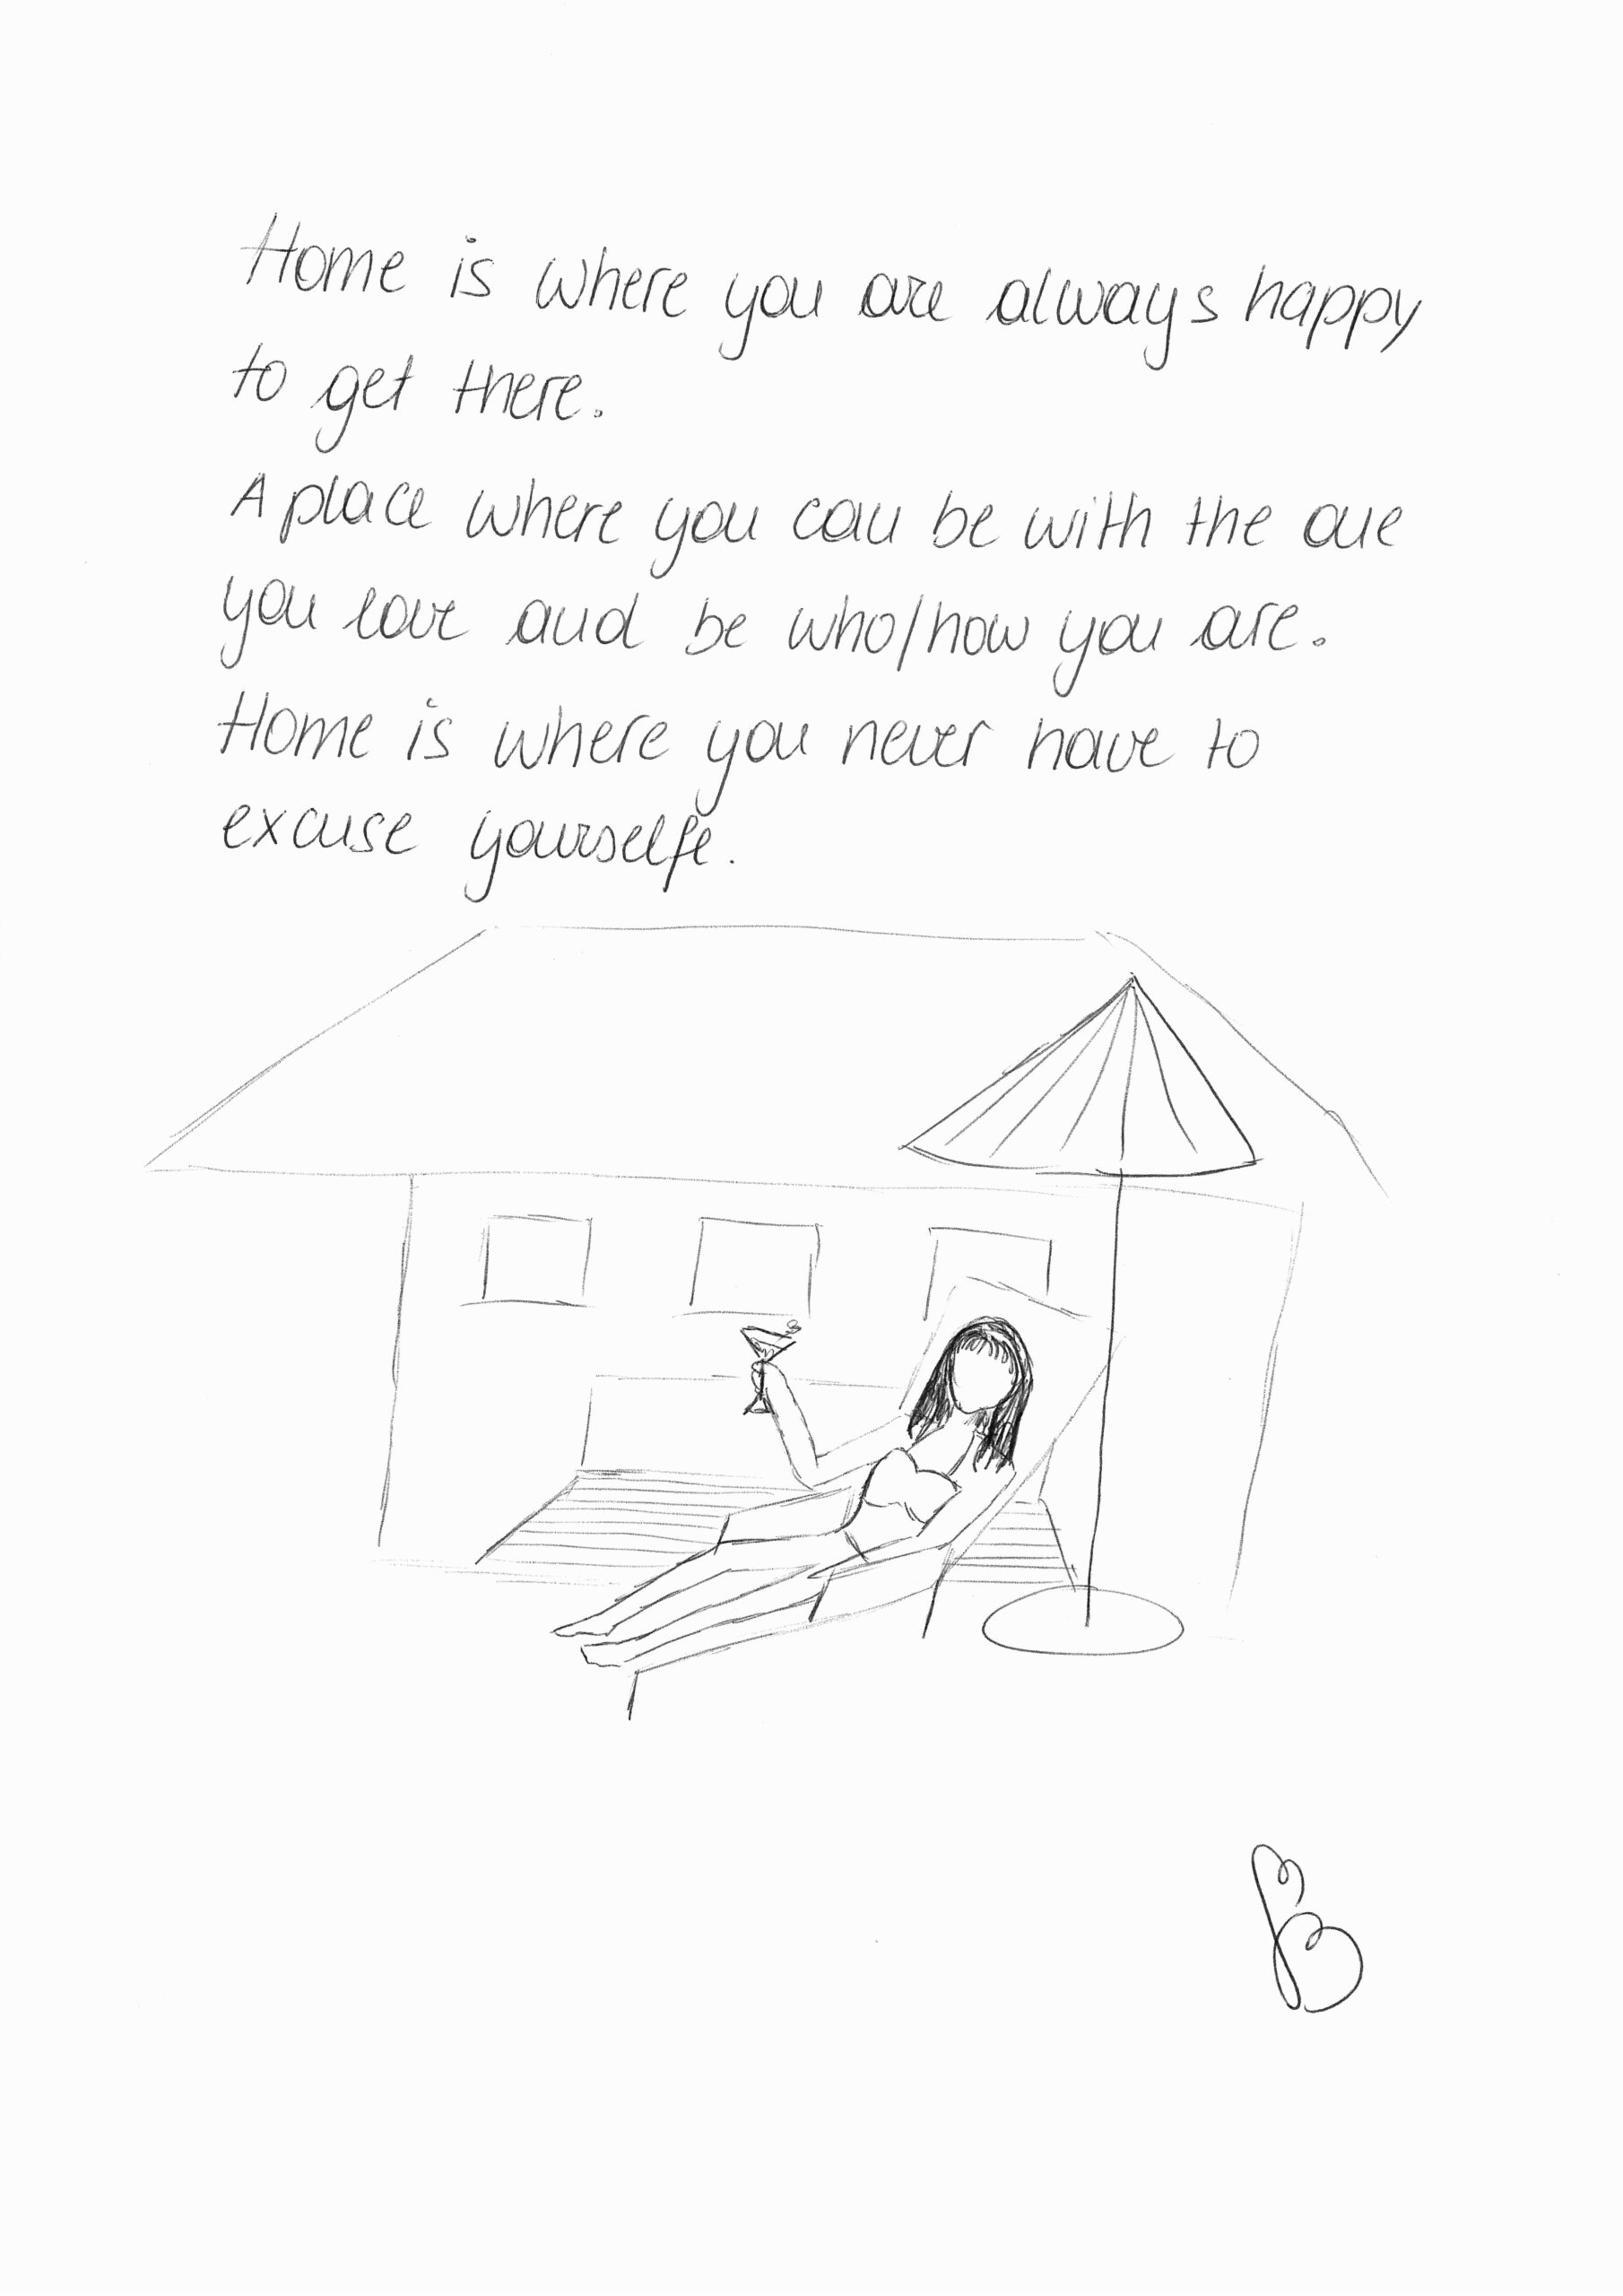 Home is where you are always happy
to get there.
A place where you can be with the one
you love and be who/how you are.
Home is where you never have to
excuse yourselfe.